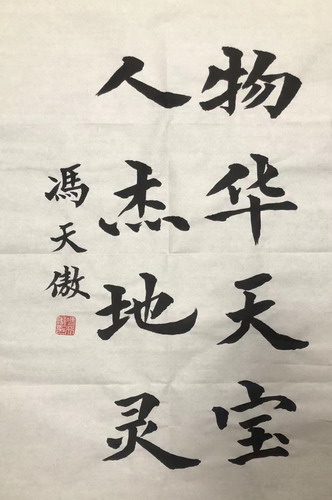 物华天宝
人杰地灵
馮天傲